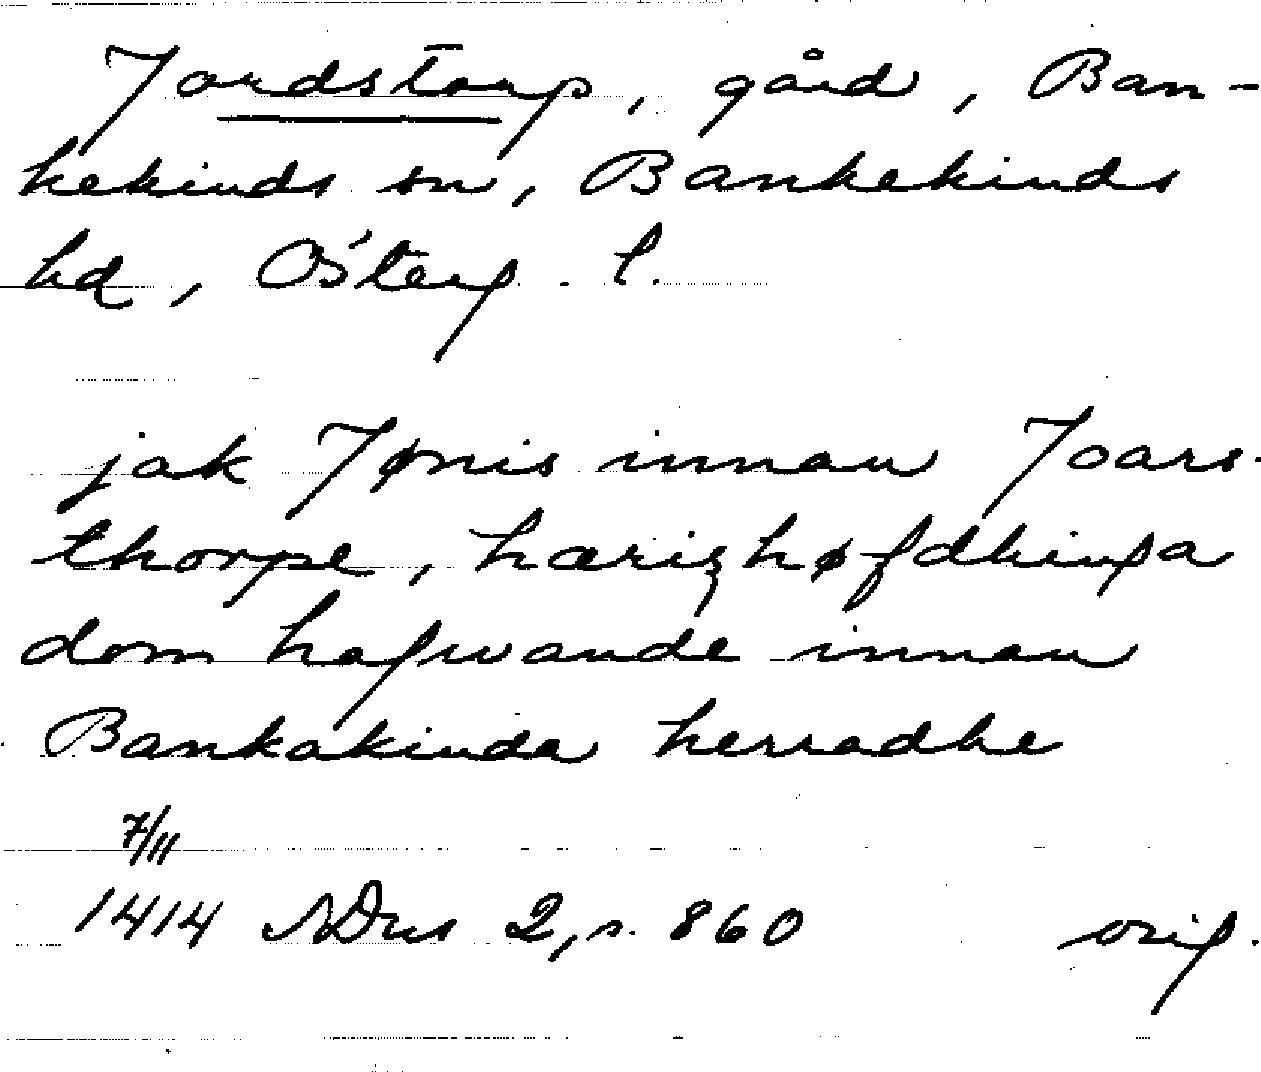 Jordstorp, gård, Ban-
kekinds sn, Bankekinds
hd, Österg. l.
jak Jønis innan Joars-
thorpe, hærizhøfdhinga
dom hafwande innan
Bankakinda herradhe
7/11
1414 SDns 2, s. 860 orig.